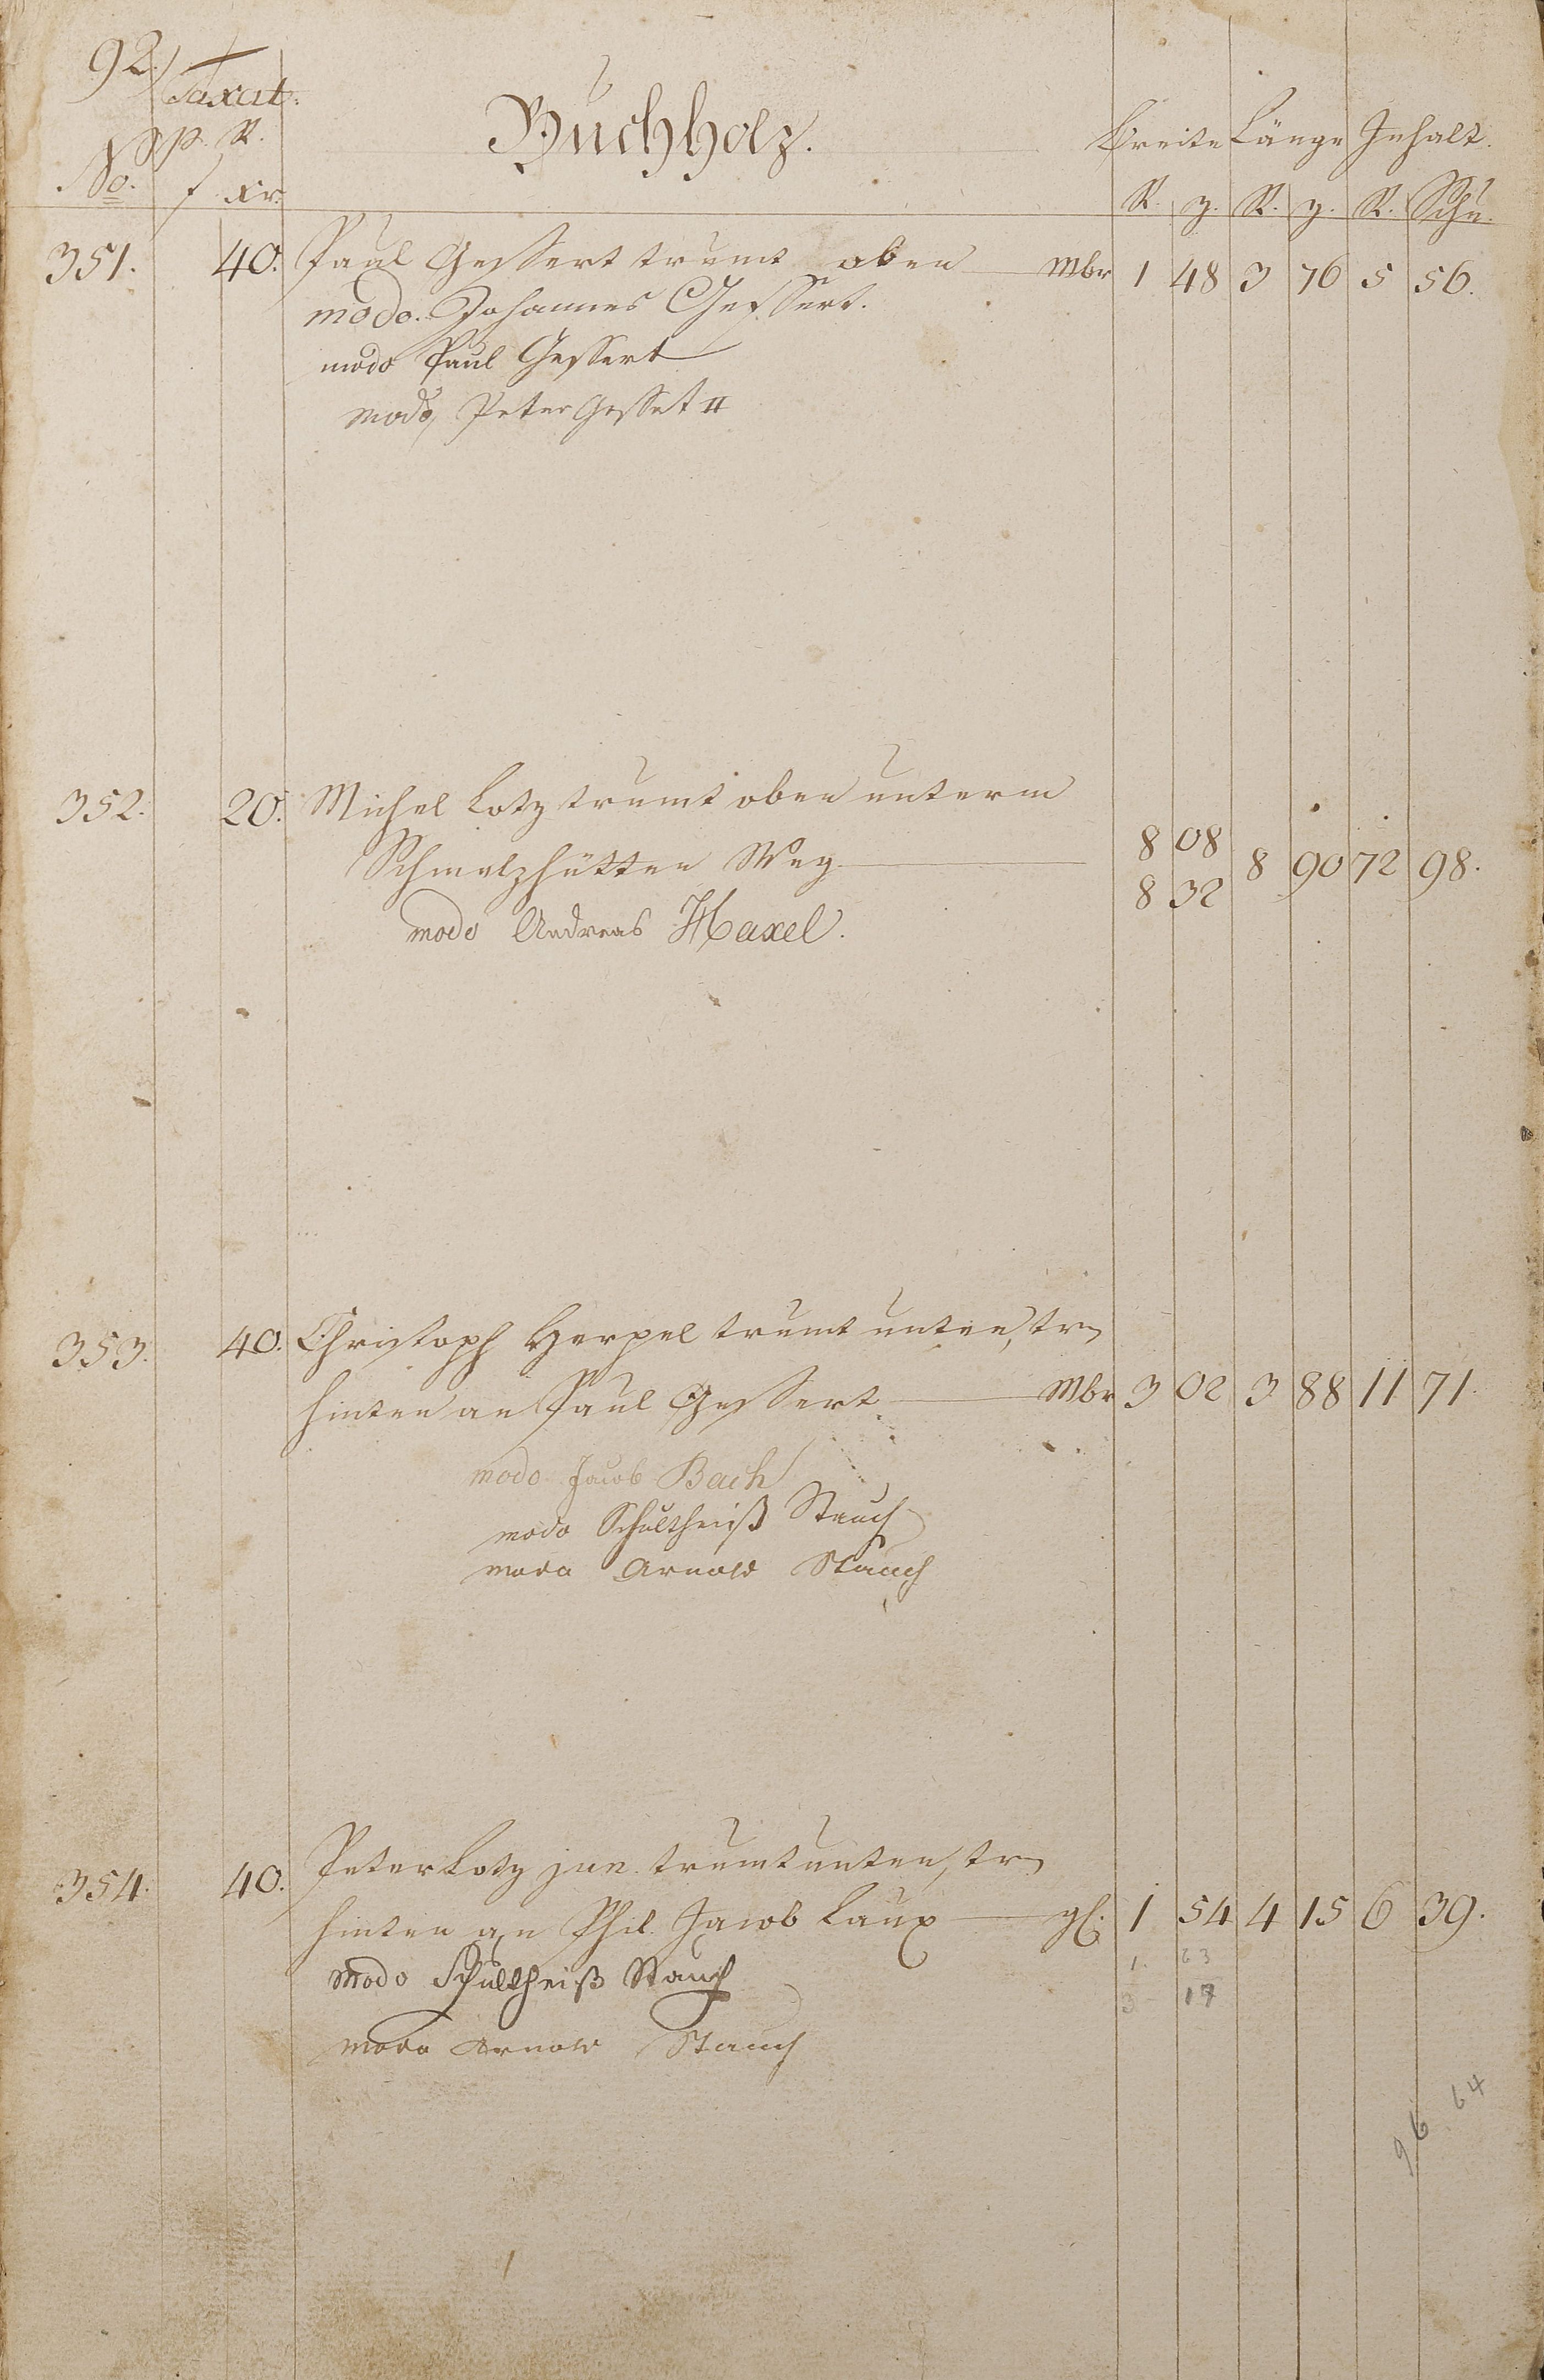 92.
Taxat.
p. R.
No. f xr.
Buchholz.
Breite Länge Inhalt.
R. z. R. z. R. Schu.
351. 40. Paul Gessert trumt oben Mbr 1 48 3 76 5 56.
modo. Johannes Gessert.
modo Paul Gessert
modo, Peter Gesset II
352. 20. Michel Lotz trumt oben unterm
Schmelzhütten Weg 8 08 8 90 72 98.
8 32
modo Andreas Haxel.
353. 40. Christoph Herpel trumt unten, tr
hinten an Paul Gessert Mbr 3 02 3 88 11 71.
modo Jacob Bach
modo Schultheiß Stauch
modo Arnold Stauch
354. 40. Peter Lotz jun. trumt unten, tr
hinten an Phil. Jacob Laux gl. 1 54 4 15 6 39.
modo Schultheiß Stauch 1. 63
3 17
modo Arnold Stauch
96.64